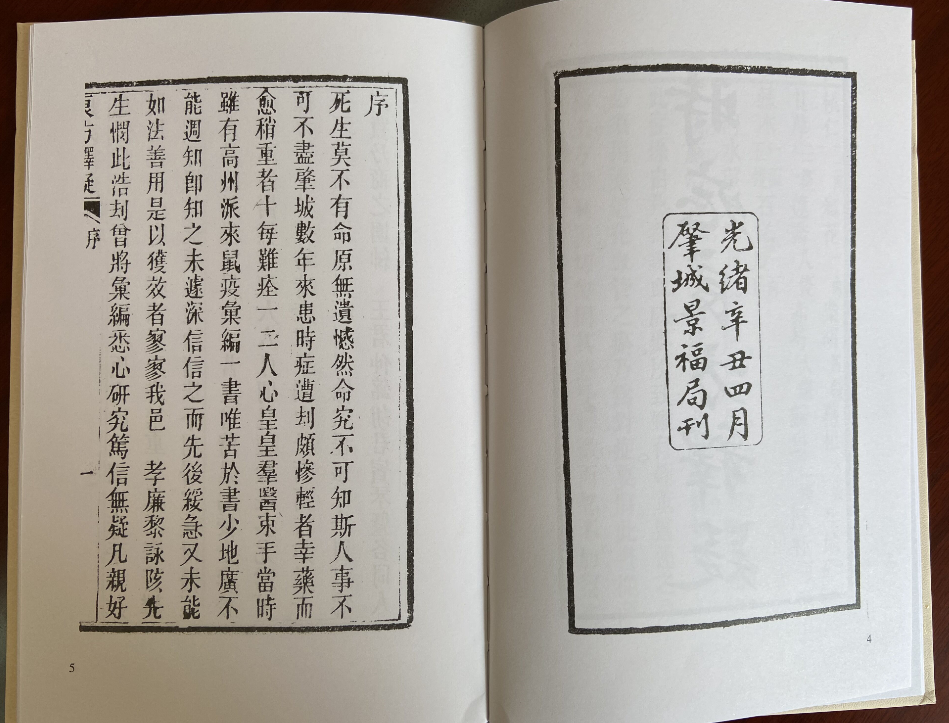 光緒辛丑四月
肇城景福局刊
4
序
死生莫不有命原無遺憾然命究不可知斯人事不
可不盡肇城數年來患時症遭刦頗慘輕者幸藥而
愈稍重者十每難痊一二人心皇皇羣醫束手當時
雖有高州派來鼠疫彙編一書唯苦於書少地廣不
能週知卽知之未遽深信信之而先後緩急又未能
如法善用是以獲效者寥寥我邑 孝廉黎詠陔先
生憫此浩刦曾將彙編悉心研究篤信無疑凡親好
良方釋疑 序 一
5